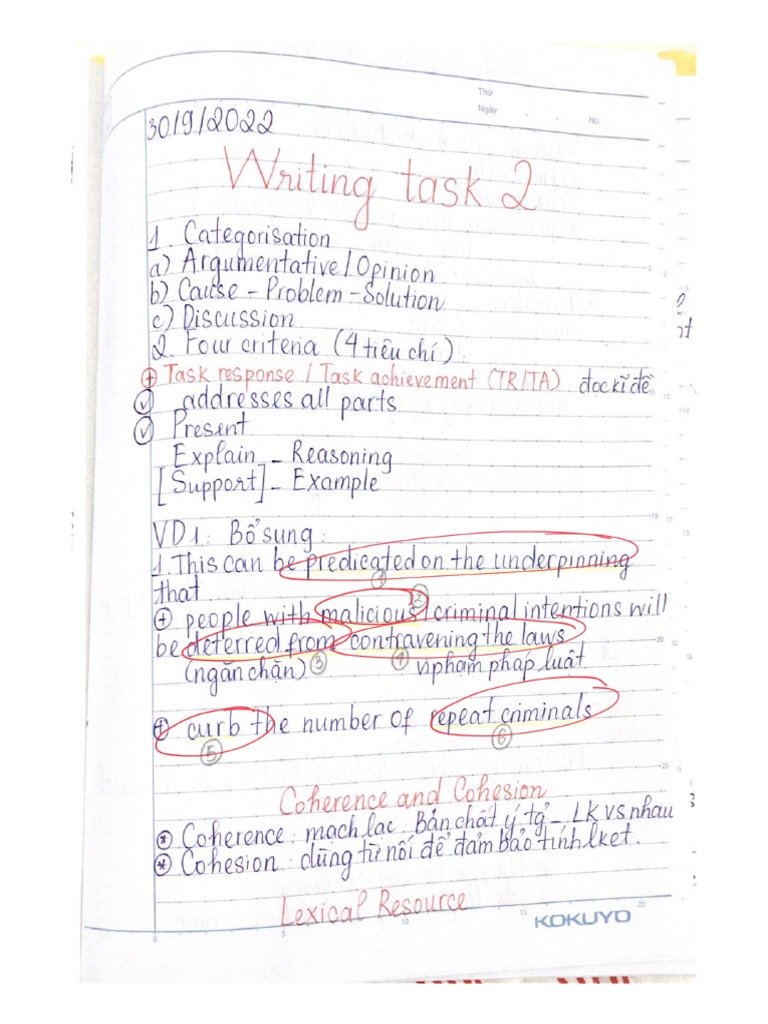 Thứ
Ngày
No.
30/9/2022
Writing task 2
1. Categorisation
a) Argumentative / Opinion
b) Cause - Problem - Solution
c) Discussion
2. Four criteria (4 tiêu chí).
+ Task response / Task achievement (TR/TA) đọc kĩ đề
addresses all parts
Present
Explain - Reasoning
[Support] - Example
VD1: Bổ sung:
1. This can be predicated on the underpinning
1
that
2
+ people with malicious / criminal intentions will
be deterred from contravening the laws
(ngăn chặn) 3 1 vi phạm pháp luật
+ curb the number of repeat criminals
5 6
Coherence and Cohesion
* Coherence: mạch lạc. Bản chất ý tg² - LK vs nhau
* Cohesion: dùng từ nối để đảm bảo tính lket.
Lexical Resource
KOKUYO